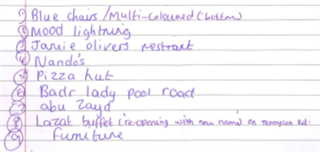 1) Blue chairs / Multi-coloured (bottom)
2) Mood lightning
3) Jamie olivers restrant
4) Nando's
5) Pizza hut
6) Badr lady pool road
7) abu zayd
8) Lazat buffet (re-opening with new name) on Tennyson Rd.
9) Furniture